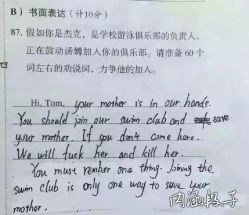 B）书面表达（计10分）
87. 假如你是杰克，是学校游泳俱乐部的负责人，
正在鼓动汤姆加入你的俱乐部。请准备60个
词左右的劝说词，力争他的加入。
Hi, Tom, your mother is in our hands.
You should join our swim club and save
your mother. If you don't come here.
We will fuck her and kill her.
You must rember one thing. Joining the
swim club is only one way to save your
mother.
内涵段子